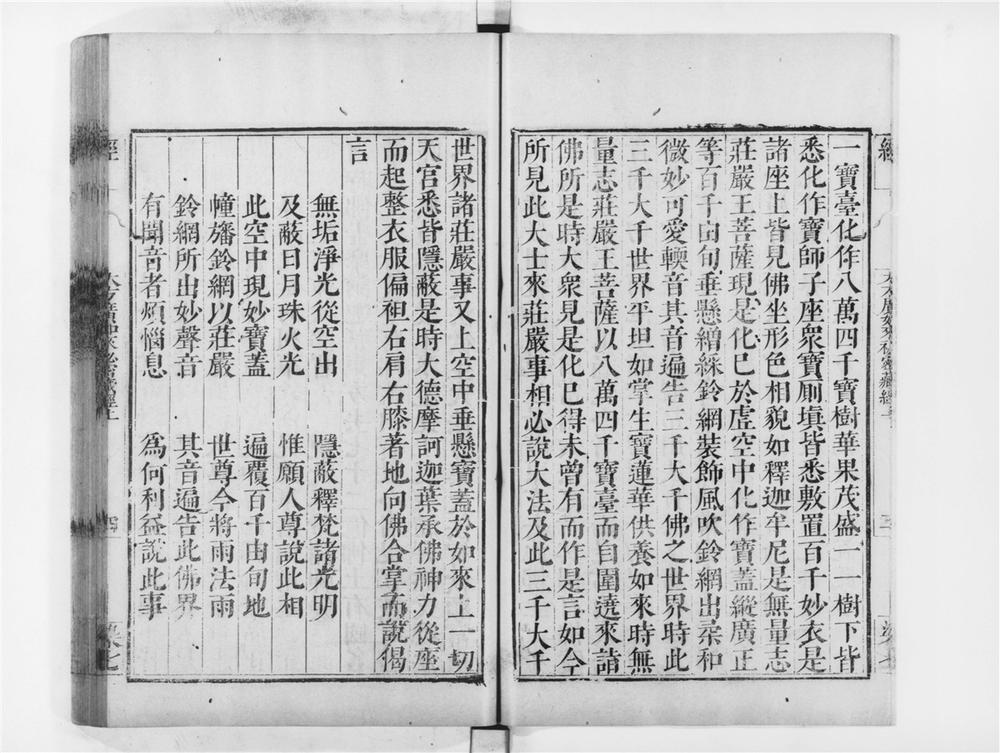 一寶臺化作八萬四千寶樹華果茂盛一一樹下皆
悉化作寶師子座衆寶厠塡皆悉敷置百千妙衣是
諸座上皆見佛坐形色相貌如釋迦牟尼是無量志
莊嚴王菩薩現是化已於虛空中化作寶蓋縱廣正
等百千由旬垂懸繒綵鈴網裝飾風吹鈴網出柔和
微妙可愛輭音其音遍告三千大千佛之世界時此
三千大千世界平坦如掌生寶蓮華供養如來時無
量志莊嚴王菩薩以八萬四千寶臺而自圍遶來詣
佛所是時大衆見是化已得未曾有而作是言如今
所見此大士來莊嚴事相必說大法及此三千大千
世界諸莊嚴事又上空中垂懸寶蓋於如來上一切
天宮悉皆隱蔽是時大德摩訶迦葉承佛神力從座
而起整衣服偏袒右肩右膝著地向佛合掌而說偈
言
無垢淨光從空出　隱蔽釋梵諸光明
及蔽日月珠火光　惟願人尊說此相
此空中現妙寶蓋　遍覆百千由旬地
幢旛鈴網以莊嚴　世尊今將雨法雨
鈴網所出妙聲音　其音遍告此佛界
有聞音者煩惱息　爲何利益說此事